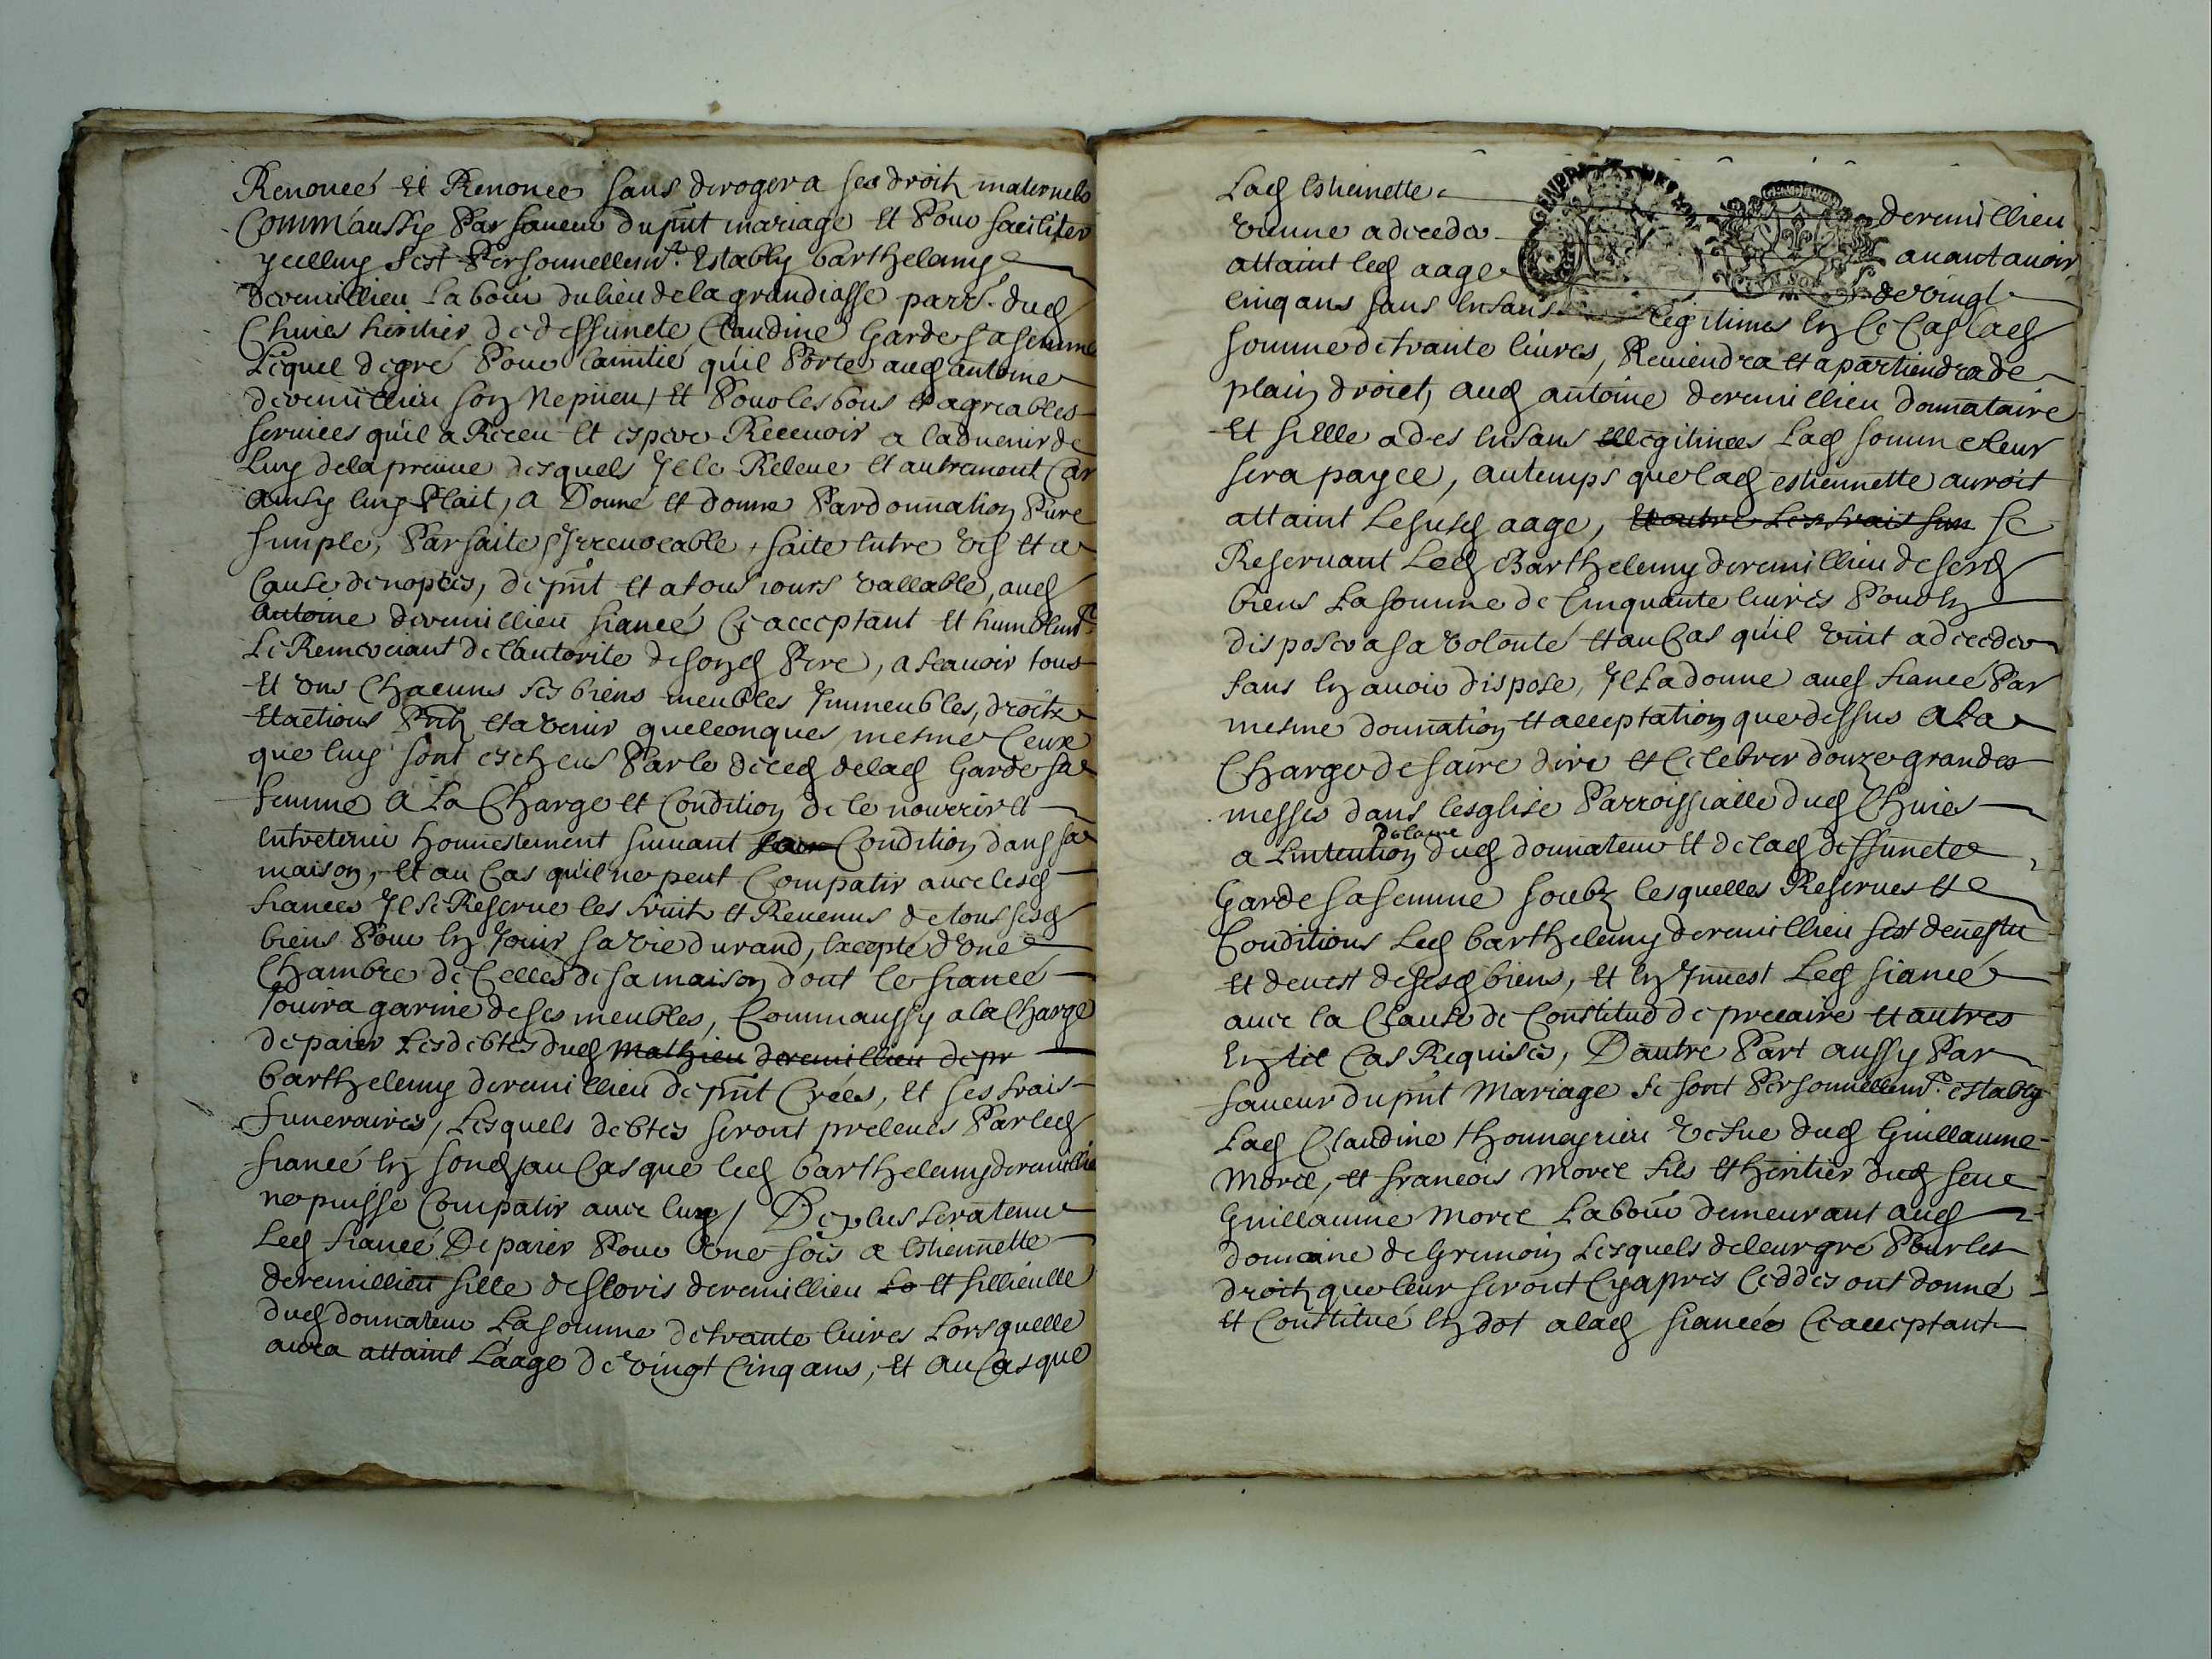 Renoncé et Renonce sans deroger a ses droitz maternels
Comm'aussy Par faueur du pnt mariage et Pour faciliter
ycelluy s'est Personnellemt. Estably barthelemy
deremillieu Labour du lieu de la grandiasse parre. dud
Chuies heritier de deffuncte Claudine Garde sa femme
Lequel de gré Pour l'amitié qu'il Porte aud antoine
deremillieu son Nepueu, et Pour les bons et agreables
seruices qu'il a Receu et espere Receuoir a l'aduenir de
Luy de la preuue desquels Il le Releue et autrement Car
ainsy luy Plait, a Donné et donne Par donnation Pure
simple, Parfaite Irreuocable, faite entre vifs et a
Cause de nopces, de pnt et a tous iours vallable, aud
Antoine deremillieu fiancé Ce acceptant et humblemt.
Le Remerciant de l'autorite de sond Pere, a scauoir tous
et vns Chacuns ses biens meubles Immeubles, droitz
et actions Pntz et a venir quelconques mesme Ceux
que luy sont escheus Par le deced de lad Garde sa
femme a La Charge et Condition de le nourrir et
entretenir honnestement suiuant sa Condition dans sa
maison, et au Cas qu'il ne peut Compatir auec lesd
fiances Il se Reserue les fruitz et Reuenus de tous sesd
biens Pour en Jouir sa vie durand, excepté d'vne
Chambre de Celles de sa maison dont le fiancé
Jouira garnie de ses meubles, Comm'aussy a la Charge
de paier Les debtes dud Mathieu deremillieu de pr
barthelemy deremillieu de pnt Créés, et ses frais
funeraires, Lesquels debtes seront preleués Par led
fiancé en fond, au Cas que led barthelemy deremillieu
ne puisse Compatir auec luy / De plus sera tenu
Led fiancé De paier Pour vne fois a Estiennette
deremillieu fille de floris deremillieu Lo et fillieulle
dud donnateur La somme de trante liures Lors quelle
aura attaint L'aage de vingt Cinq ans, et au Cas que
Lad Estiennette deremillieu
vienne a deceder auant auoir
attaint led aage de vingt
cinq ans sans enfans legitimes en Ce Cas lad
somme de trante liures, Reuiendra et apartiendra de
plain droict, aud antoine deremillieu donnataire
et si Elle a des enfans legitimes Lad somme leur
sera payee, au temps que lad estiennette auroit
attaint Le susd aage, et outre Les frais fun se
Reseruant Led Barthelemy deremillieu de sesd
biens La somme de Cinquante liures Pour en
disposer a sa volonté et au Cas qu'il vint a deceder
sans en auoir disposé, Il La donne aud fiancé Par
mesme donnation et acceptation que dessus a La
Charge de faire dire et Celebrer douze grandes
messes dans l'esglise Parroissialle dud Chuies
a L'intention de l'ame dud donnateur et de lad deffuncte
Garde sa femme soubz lesquelles Reserues et
Conditions Led barthelemy deremillieu s'est deuestu
et deuest de sesd biens, et en Inuest Led fiancé
auec la Clause de Constitud de precaire et autres
En tel Cas Requises, D'autre Part aussy Par
faueur du pnt Mariage se sont Personnellemt. establys
Lad Claudine thonneyrieu vefue dud Guillaume
Morel, et francois Morel fils et heritier dud feue
Guillaume Morel Labour demeurant aud
domaine de Grimoin Lesquels de leur gré Pour les
droitz que leur seront Cy apres Ceddés ont donné
et Constitué en dot a lad fiancée Ce acceptant